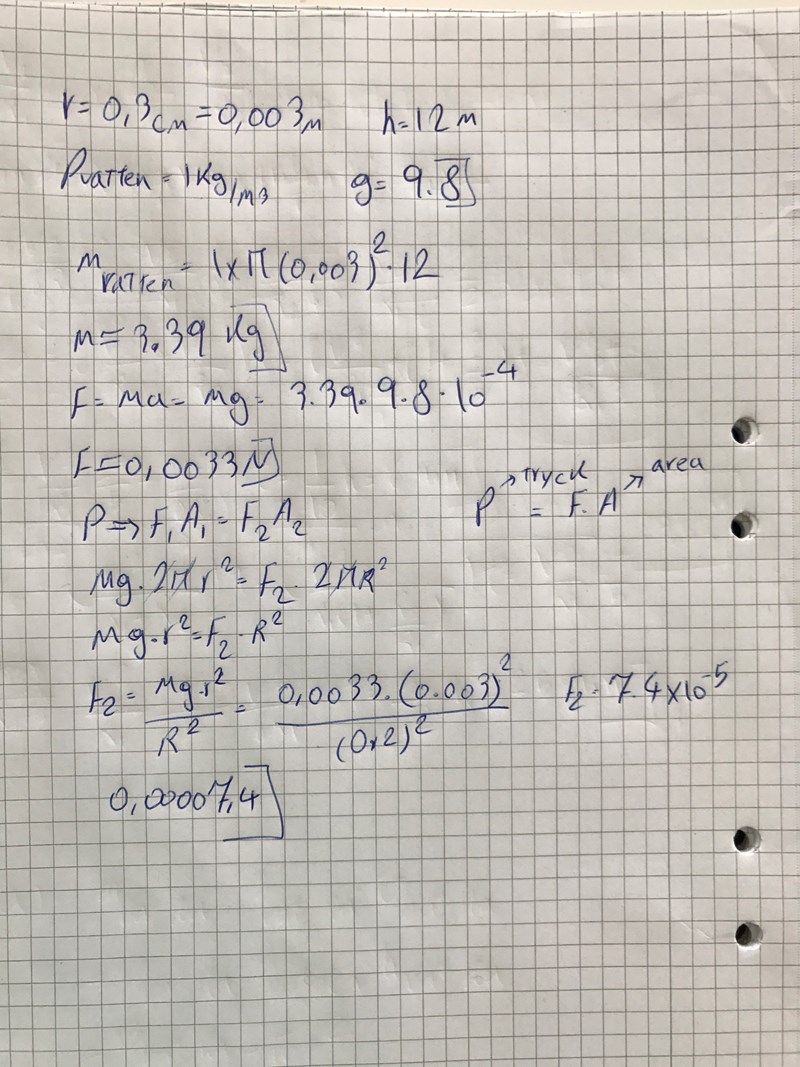 r = 0,3cm = 0,003m h = 12 m
ρvatten = 1 Kg/m3 g = 9.8
mvatten = 1 x π (0,003)² · 12
m = 3.39 Kg
F = Ma = Mg = 3.39 · 9.8 · 10⁻⁴
F = 0,0033 N
P ⇒ F₁A₁ = F₂A₂ P → tryck = F. A → area
Mg · 2πr² = F₂ · 2πR²
Mg · r² = F₂ · R²
F₂ = Mg·r² / R² = 0,0033 · (0.003)² / (0,2)² F₂ = 7.4 x 10⁻⁵
0,00007,4